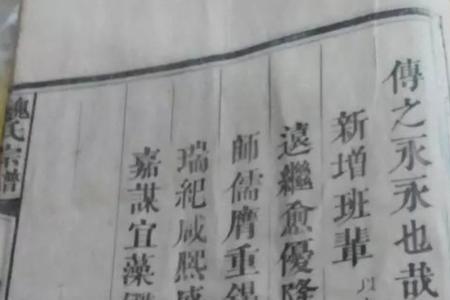 傳之永永也哉
新增班輩
遠繼愈優隆
師儒膺重錫
瑞紀咸熙盛
嘉謀宜藻
魏氏宗譜